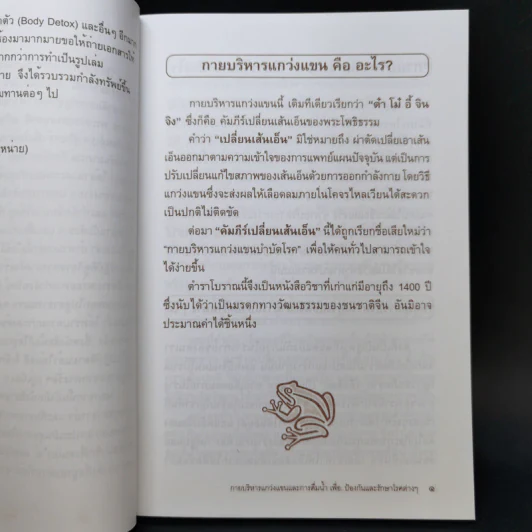 ตัว (Body Detox) และอื่นๆ อีกมาก
้องมามากมายขอให้ถ่ายเอกสารให้
ากกว่าการทำเป็นรูปเล่ม
าย จึงได้รวบรวมกำลังทรัพย์ขึ้น
มทานต่อๆ ไป
หน่าย)
กายบริหารแกว่งแขน คือ อะไร?
กายบริหารแกว่งแขนนี้ เดิมทีเดียวเรียกว่า “ต๋า โม๋ อี้ จิน
จิง” ซึ่งก็คือ คัมภีร์เปลี่ยนเส้นเอ็นของพระโพธิธรรม
คำว่า “เปลี่ยนเส้นเอ็น” มิใช่หมายถึง ผ่าตัดเปลี่ยเอาเส้น
เอ็นออกมาตามความเข้าใจของการแพทย์แผนปัจจุบัน แต่เป็นการ
ปรับเปลี่ยนแก้ไขสภาพของเส้นเอ็นด้วยการออกกำลังกาย โดยวิธี
แกว่งแขนซึ่งจะส่งผลให้เลือดลมภายในโคจรไหลเวียนได้สะดวก
เป็นปกติไม่ติดขัด
ต่อมา “คัมภีร์เปลี่ยนเส้นเอ็น” นี้ได้ถูกเรียกชื่อเสียใหม่ว่า
“กายบริหารแกว่งแขนบำบัดโรค” เพื่อให้คนทั่วไปสามารถเข้าใจ
ได้ง่ายขึ้น
ตำราโบราณนี้จึงเป็นหนังสือวิชาที่เก่าแก่มีอายุถึง 1400 ปี
ซึ่งนับได้ว่าเป็นมรดกทางวัฒนธรรมของชนชาติจีน อันมิอาจ
ประมาณค่าได้ชิ้นหนึ่ง
กายบริหารแกว่งแขนและการดื่มน้ำ เพื่อ. ป้องกันและรักษาโรคต่างๆ